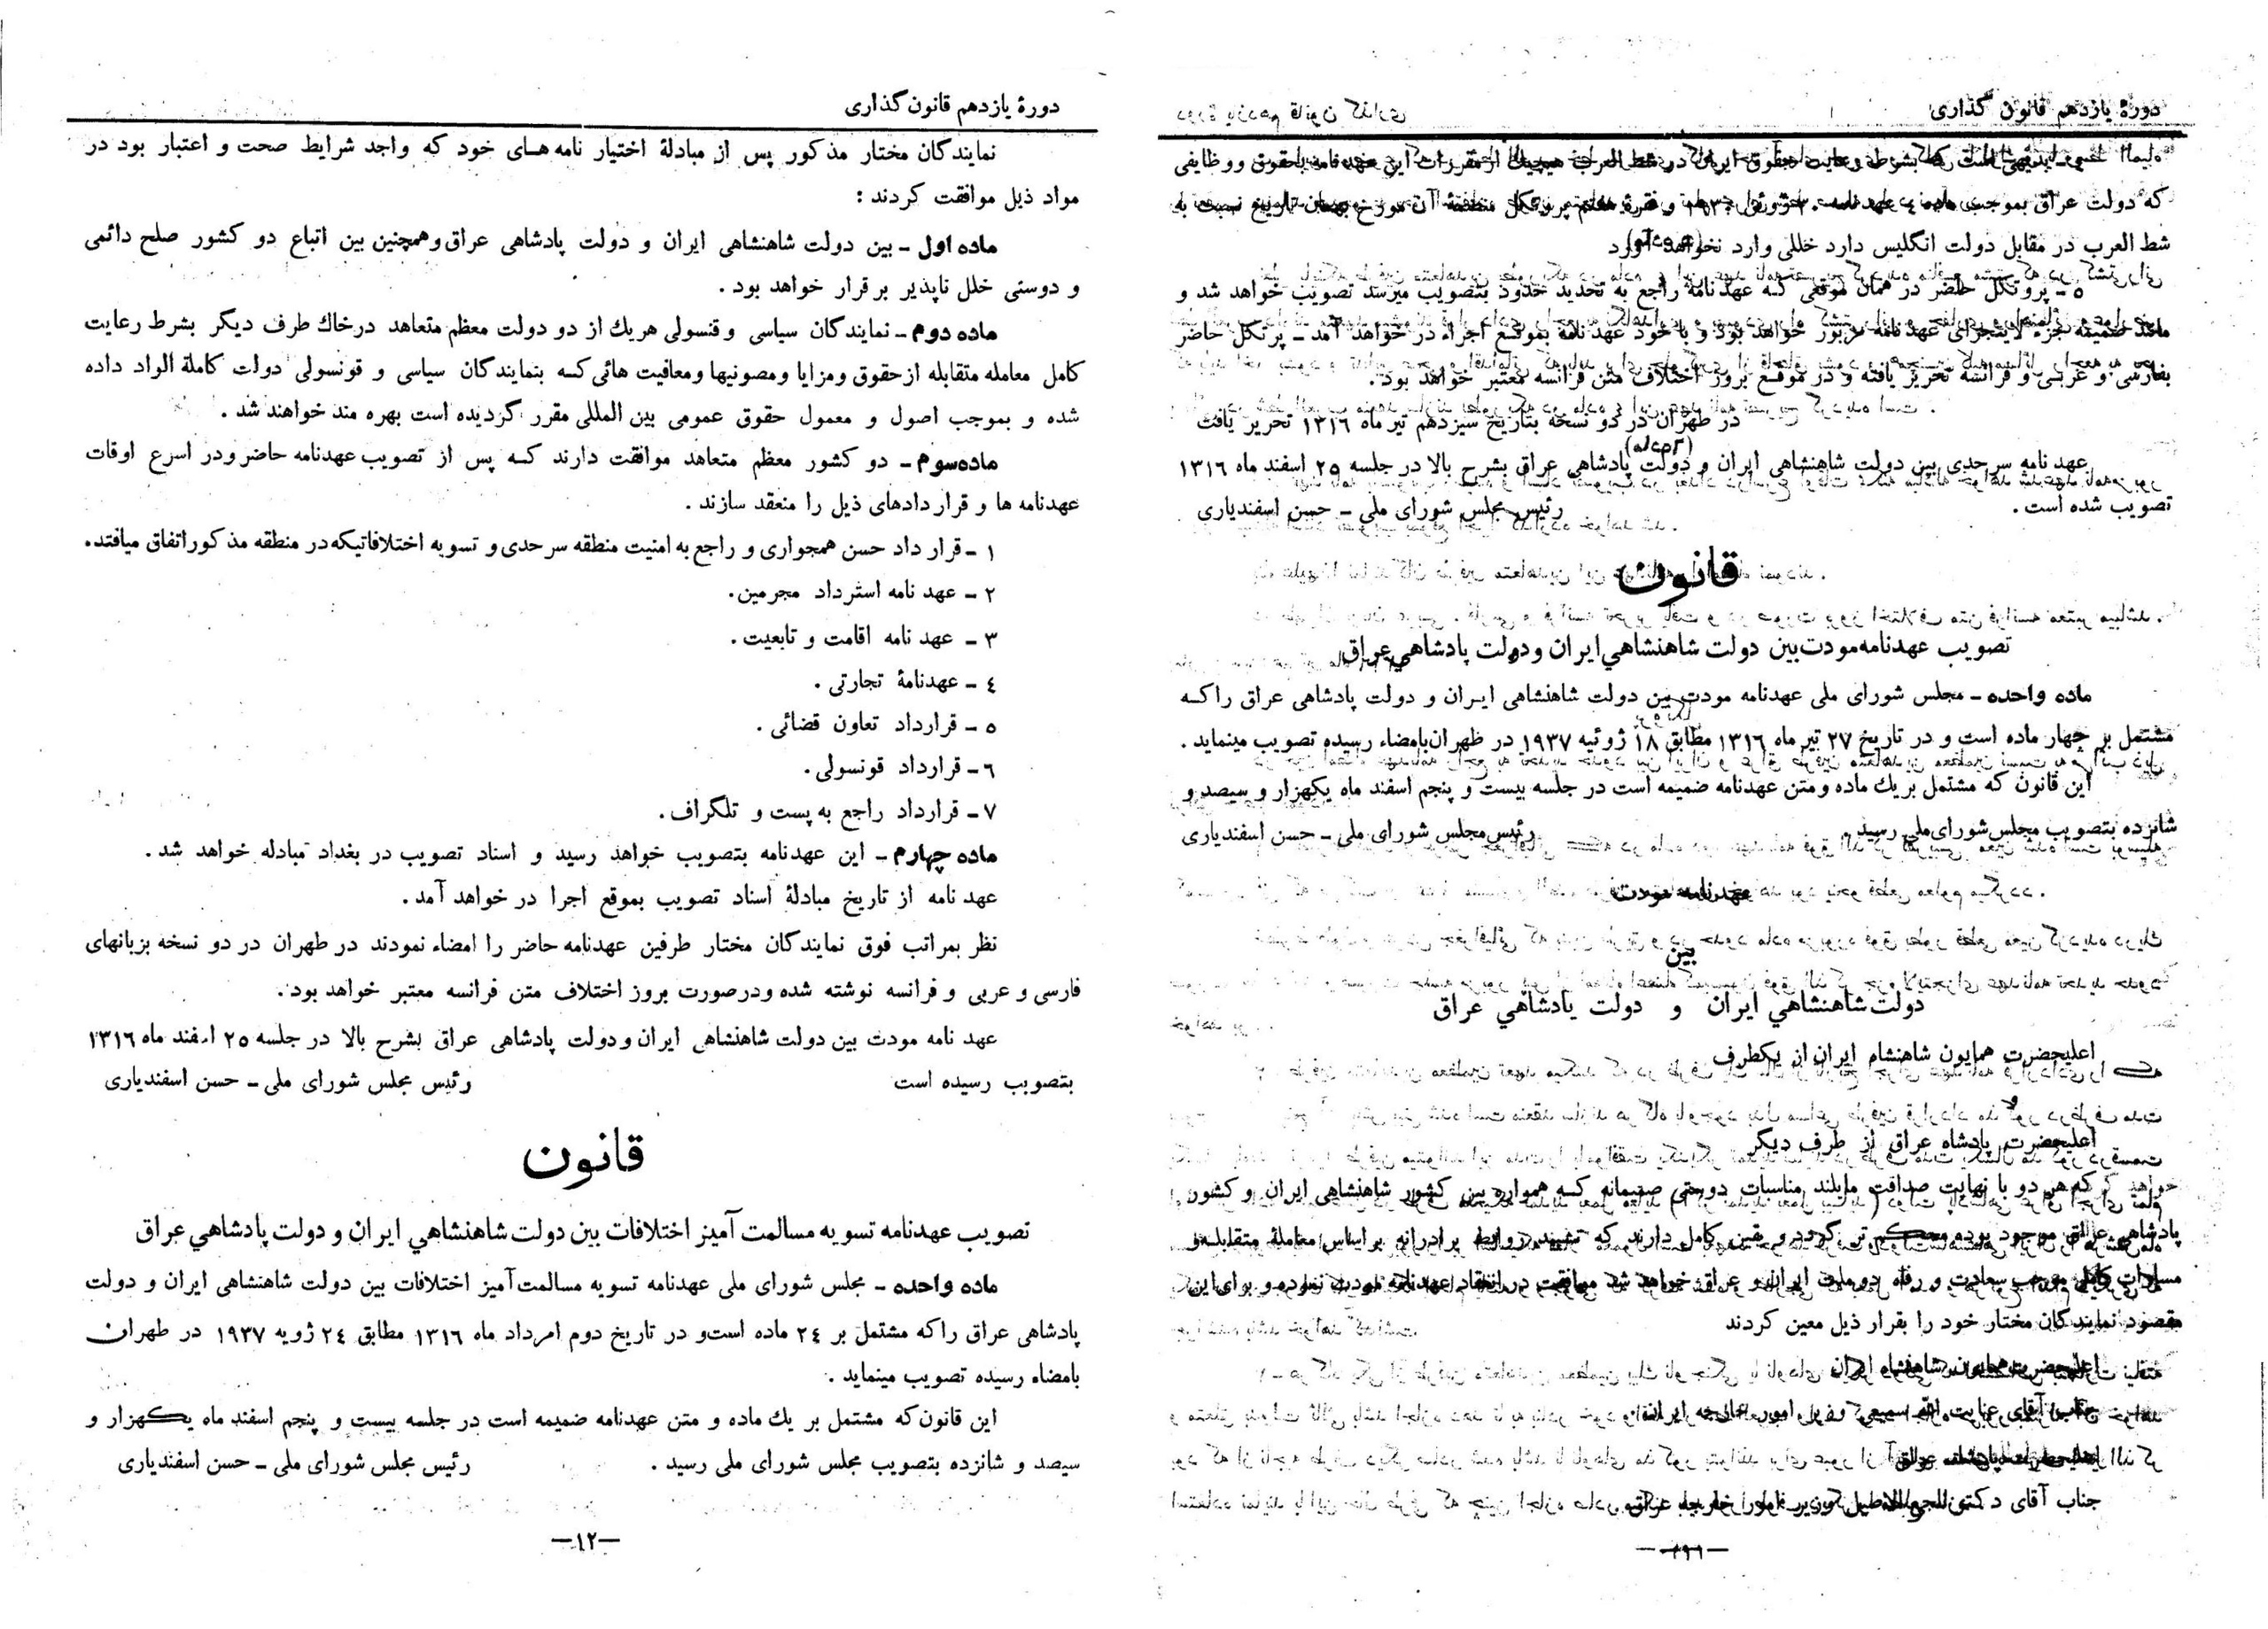 دورهٔ یازدهم قانون گذاری
٤ ـ بدیهی است که بشرط رعایت حقوق ایران در شط العرب هیچیك از مقررات این عهدنامه بحقوق ووظایفی
که دولت عراق بموجب ماده ٤ عهدنامه ٣٠ ژوئن ١٩٣٠ و فقرهٔ هفتم پروتکل منضمهٔ آن مورخ بهمان تاریخ نسبت به
شط العرب در مقابل دولت انگلیس دارد خللی وارد نخواهد آورد
٥ ـ پروتکل حاضر در همان موقعی که عهدنامهٔ راجع به تحدید حدود بتصویب میرسد تصویب خواهد شد و
مانند ضمیمه جزء لایتجزای عهدنامه مزبور خواهد بود و با خود عهدنامه بموقع اجراء در خواهد آمد ـ پرتکل حاضر
بفارسی و عربی و فرانسه تحریر یافته و در موقع بروز اختلاف متن فرانسه معتبر خواهد بود.
در طهران در دو نسخه بتاریخ سیزدهم تیر ماه ١٣١٦ تحریر یافت
عهدنامه سرحدی بین دولت شاهنشاهی ایران و دولت پادشاهی عراق بشرح بالا در جلسه ٢٥ اسفند ماه ١٣١٦
تصویب شده است .
رئیس مجلس شورای ملی ـ حسن اسفندیاری
قانون
تصویب عهدنامه مودت بین دولت شاهنشاهي ایران و دولت پادشاهي عراق
ماده واحده ـ مجلس شورای ملی عهدنامه مودت بین دولت شاهنشاهی ایران و دولت پادشاهی عراق را که
مشتمل بر چهار ماده است و در تاریخ ٢٧ تیر ماه ١٣١٦ مطابق ١٨ ژوئیه ١٩٣٧ در طهران بامضاء رسیده تصویب مینماید .
این قانون که مشتمل بریك ماده و متن عهدنامه ضمیمه است در جلسه بیست و پنجم اسفند ماه یکهزار و سیصد و
شانزده بتصویب مجلس شورای ملی رسید .
رئیس مجلس شورای ملی ـ حسن اسفندیاری
عهدنامه مودت
بین
دولت شاهنشاهي ایران و دولت پادشاهي عراق
اعلیحضرت همایون شاهنشاه ایران از یکطرف
و
اعلیحضرت پادشاه عراق از طرف دیگر
که هر دو با نهایت صداقت مایلند مناسبات دوستی صمیمانه که همواره بین کشور شاهنشاهی ایران و کشور
پادشاهی عراق موجود بوده محکم تر گردد و یقین کامل دارند که تشیید روابط برادرانه بر اساس معاملهٔ متقابله و
مساوات کامل موجب سعادت و رفاه دو ملت ایران و عراق خواهد شد موافقت در انعقاد عهدنامه مودت نموده و برای این
مقصود نمایندگان مختار خود را بقرار ذیل معین کردند
اعلیحضرت همایون شاهنشاه ایران
جناب آقای عنایت الله سمیعی وزیر امور خارجه ایران
اعلیحضرت پادشاه عراق
جناب آقای دکتر ناجی الاصیل وزیر امور خارجه عراق
دورهٔ یازدهم قانون گذاری
نمایندگان مختار مذکور پس از مبادلهٔ اختیار نامه های خود که واجد شرایط صحت و اعتبار بود در
مواد ذیل موافقت کردند :
ماده اول ـ بین دولت شاهنشاهی ایران و دولت پادشاهی عراق و همچنین بین اتباع دو کشور صلح دائمی
و دوستی خلل ناپذیر بر قرار خواهد بود .
ماده دوم ـ نمایندگان سیاسی و قنسولی هریك از دو دولت معظم متعاهد در خاك طرف دیگر بشرط رعایت
کامل معامله متقابله از حقوق و مزایا و مصونیها و معافیت هائی که بنمایندگان سیاسی و قونسولی دولت کاملة الواد داده
شده و بموجب اصول و معمول حقوق عمومی بین المللی مقرر گردیده است بهره مند خواهند شد .
ماده سوم ـ دو کشور معظم متعاهد موافقت دارند که پس از تصویب عهدنامه حاضر و در اسرع اوقات
عهدنامه ها و قراردادهای ذیل را منعقد سازند .
١ ـ قرار داد حسن همجواری و راجع به امنیت منطقه سرحدی و تسویه اختلافاتیکه در منطقه مذکور اتفاق میافتد.
٢ ـ عهد نامه استرداد مجرمین.
٣ ـ عهد نامه اقامت و تابعیت.
٤ ـ عهدنامهٔ تجارتی .
٥ ـ قرارداد تعاون قضائی .
٦ ـ قرارداد قونسولی.
٧ ـ قرارداد راجع به پست و تلگراف.
ماده چهارم ـ این عهدنامه بتصویب خواهد رسید و اسناد تصویب در بغداد مبادله خواهد شد .
عهد نامه از تاریخ مبادلهٔ اسناد تصویب بموقع اجرا در خواهد آمد.
نظر بمراتب فوق نمایندگان مختار طرفین عهدنامه حاضر را امضاء نمودند در طهران در دو نسخه بزبانهای
فارسی و عربی و فرانسه نوشته شده و درصورت بروز اختلاف متن فرانسه معتبر خواهد بود.
عهد نامه مودت بین دولت شاهنشاهی ایران و دولت پادشاهی عراق بشرح بالا در جلسه ٢٥ اسفند ماه ١٣١٦
بتصویب رسیده است
رئیس مجلس شورای ملی ـ حسن اسفندیاری
قانون
تصویب عهدنامه تسویه مسالمت آمیز اختلافات بین دولت شاهنشاهي ایران و دولت پادشاهي عراق
ماده واحده ـ مجلس شورای ملی عهدنامه تسویه مسالمت آمیز اختلافات بین دولت شاهنشاهی ایران و دولت
پادشاهی عراق را که مشتمل بر ٢٤ ماده است و در تاریخ دوم امرداد ماه ١٣١٦ مطابق ٢٤ ژویه ١٩٣٧ در طهران
بامضاء رسیده تصویب مینماید .
این قانون که مشتمل بر یك ماده و متن عهدنامه ضمیمه است در جلسه بیست و پنجم اسفند ماه یکهزار و
سیصد و شانزده بتصویب مجلس شورای ملی رسید .
رئیس مجلس شورای ملی ـ حسن اسفندیاری
—١٢—